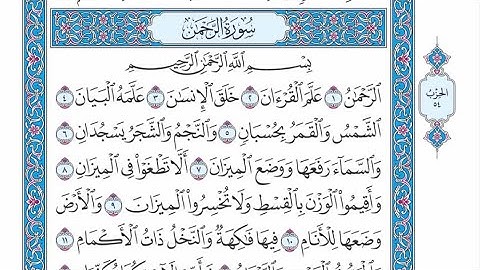 سُورَةُ الرَّحۡمَٰن
بِسۡمِ ٱللَّهِ ٱلرَّحۡمَٰنِ ٱلرَّحِيمِ
ٱلرَّحۡمَٰنُ ١ عَلَّمَ ٱلۡقُرۡءَانَ ٢ خَلَقَ ٱلۡإِنسَٰنَ ٣ عَلَّمَهُ ٱلۡبَيَانَ ٤
ٱلشَّمۡسُ وَٱلۡقَمَرُ بِحُسۡبَانٖ ٥ وَٱلنَّجۡمُ وَٱلشَّجَرُ يَسۡجُدَانِ ٦
وَٱلسَّمَآءَ رَفَعَهَا وَوَضَعَ ٱلۡمِيزَانَ ٧ أَلَّا تَطۡغَوۡاْ فِي ٱلۡمِيزَانِ ٨
وَأَقِيمُواْ ٱلۡوَزۡنَ بِٱلۡقِسۡطِ وَلَا تُخۡسِرُواْ ٱلۡمِيزَانَ ٩ وَٱلۡأَرۡضَ
وَضَعَهَا لِلۡأَنَامِ ١٠ فِيهَا فَٰكِهَةٞ وَٱلنَّخۡلُ ذَاتُ ٱلۡأَكۡمَامِ ١١
الحِزْبُ
٥٤